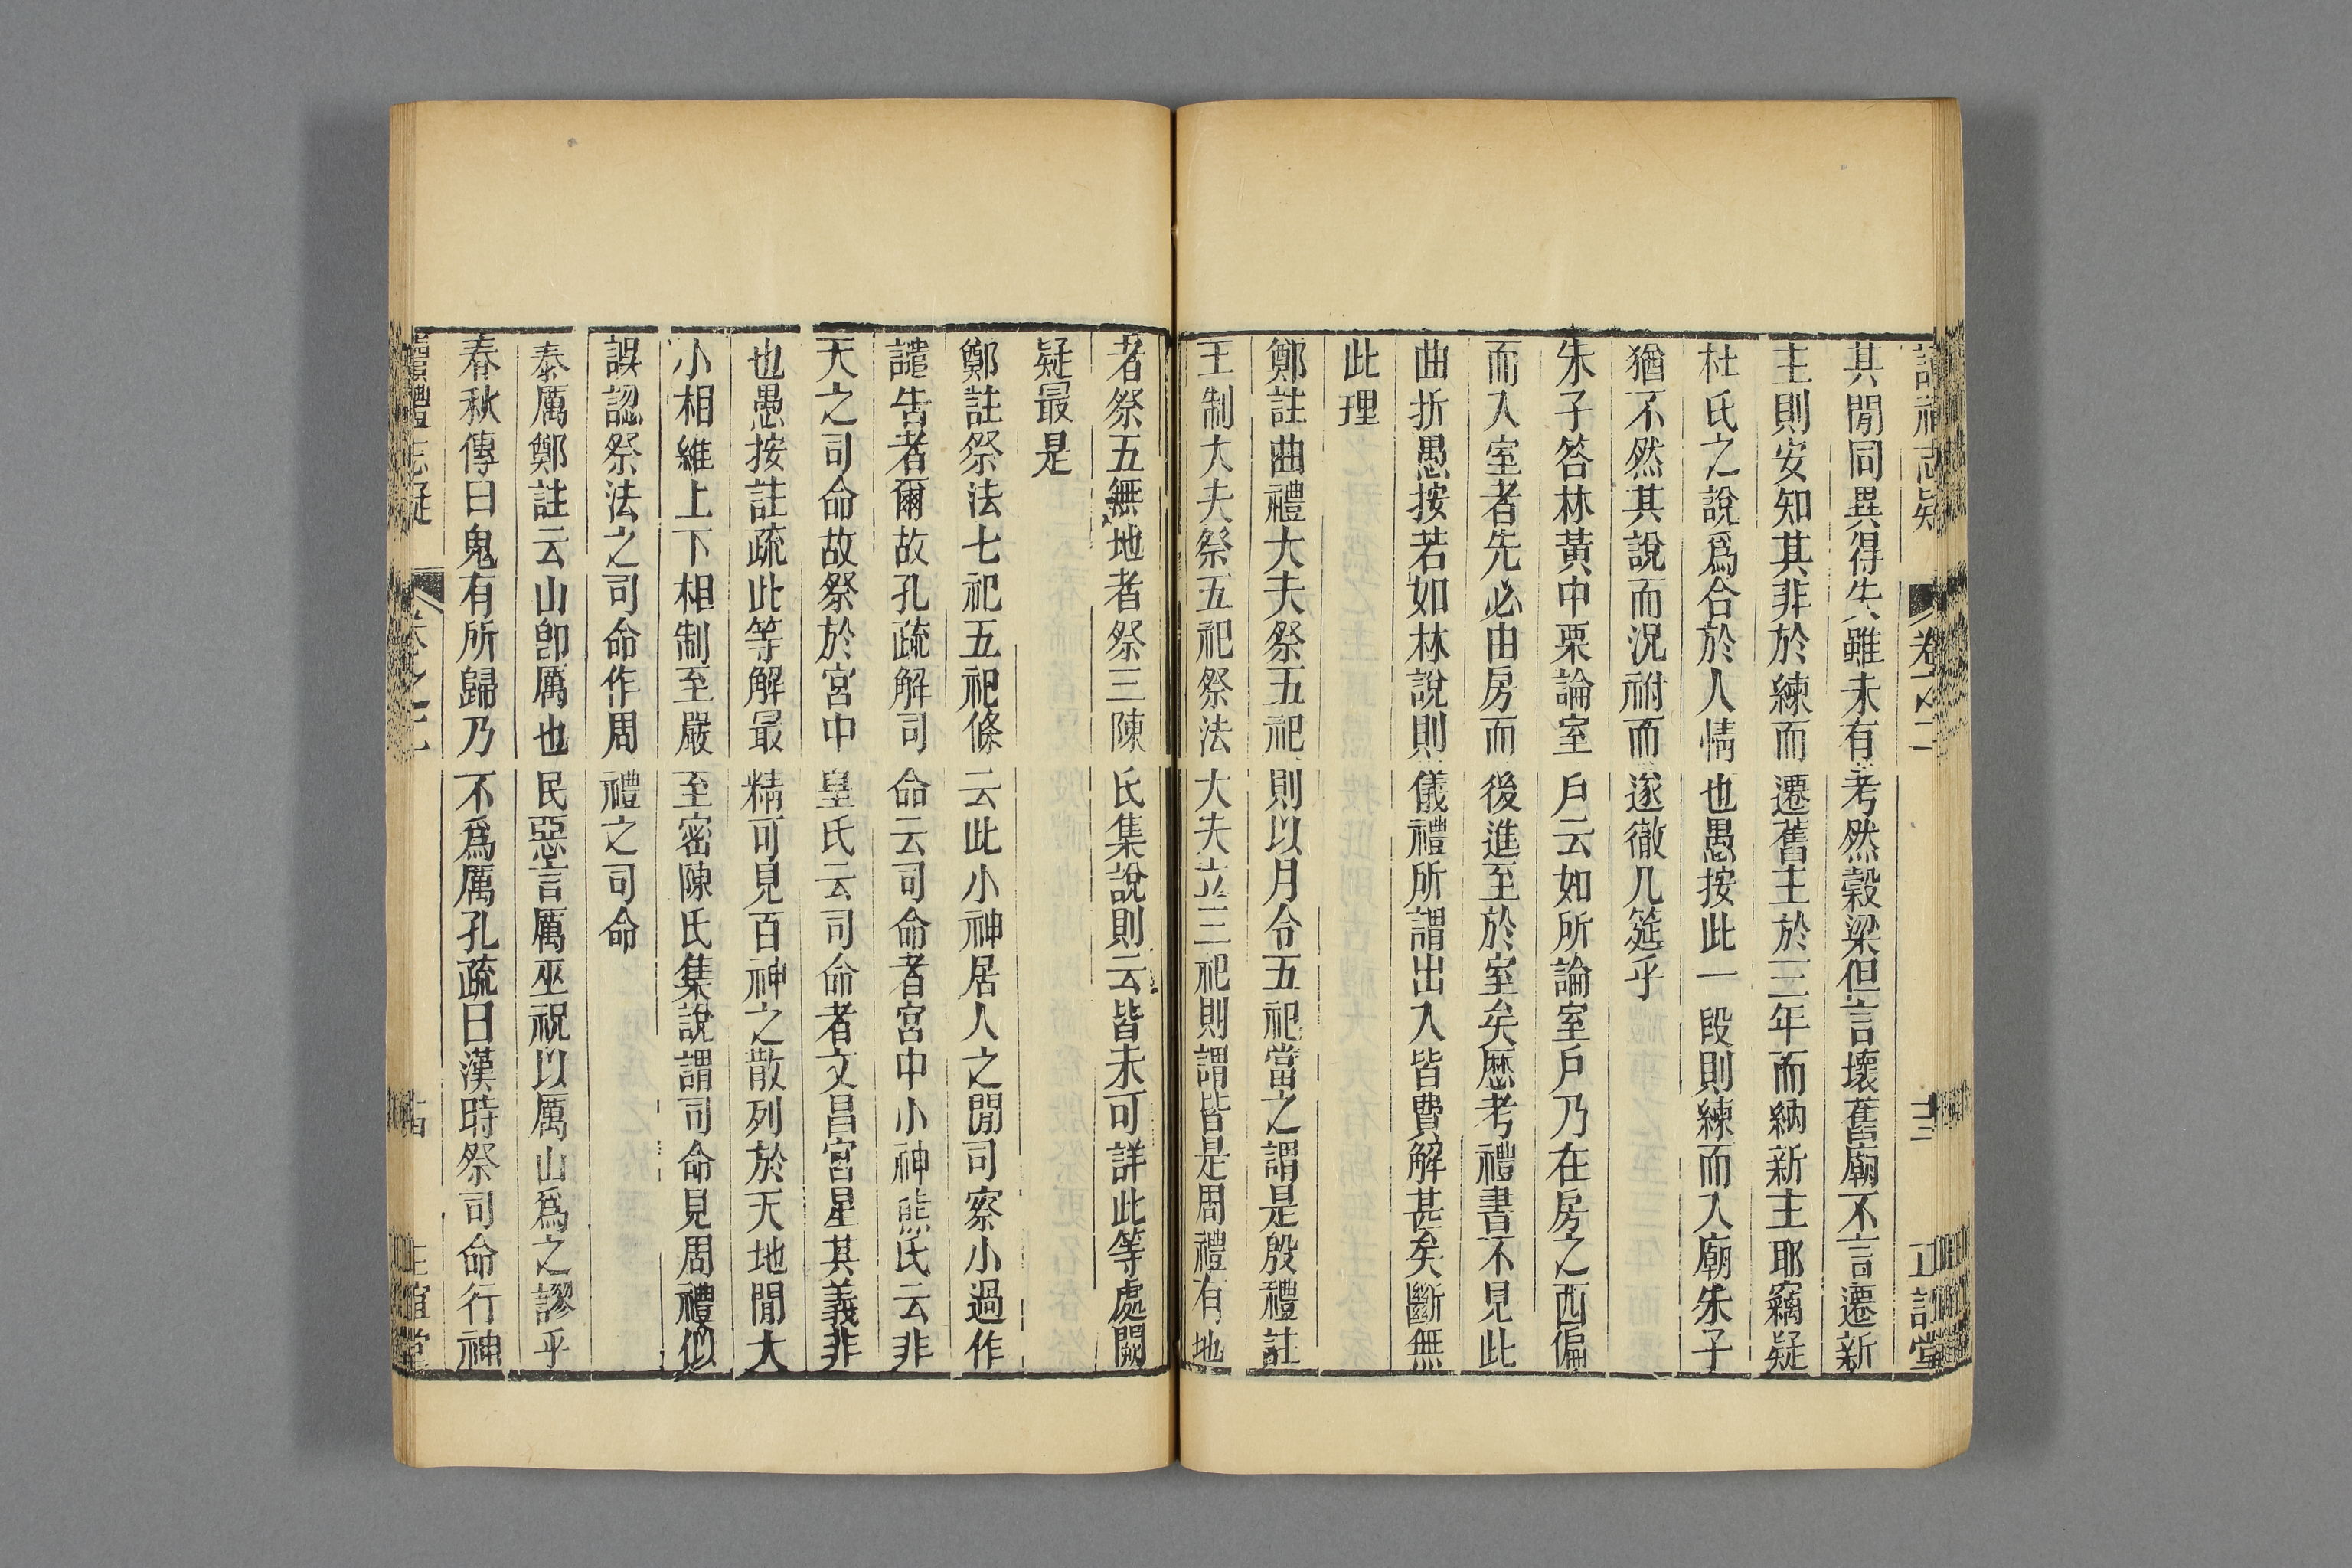 讀禮志疑 卷之二 十三 正誼堂
其閒同異得失雖未有考然穀梁但言壞舊廟不言遷新
主則安知其非於練而遷舊主於三年而納新主耶竊疑
杜氏之說爲合於人情也愚按此一段則練而入廟朱子
猶不然其說而況祔而遂徹几筵乎
朱子答林黃中栗論室戶云如所論室戶乃在房之西偏
而入室者先必由房而後進至於室矣歷考禮書不見此
曲折愚按若如林說則儀禮所謂出入皆費解甚矣斷無
此理
鄭註曲禮大夫祭五祀則以月令五祀當之謂是殷禮註
王制大夫祭五祀祭法大夫立三祀則謂皆是周禮有地
者祭五無地者祭三陳氏集說則云皆未可詳此等處闕
疑最是
鄭註祭法七祀五祀條云此小神居人之閒司察小過作
譴告者爾故孔疏解司命云司命者宮中小神熊氏云非
天之司命故祭於宮中皇氏云司命者文昌宮星其義非
也愚按註疏此等解最精可見百神之散列於天地閒大
小相維上下相制至嚴至密陳氏集說謂司命見周禮似
誤認祭法之司命作周禮之司命
泰厲鄭註云山卽厲也民惡言厲巫祝以厲山爲之謬乎
春秋傳曰鬼有所歸乃不爲厲孔疏曰漢時祭司命行神
讀禮志疑 卷之二 十四 正誼堂